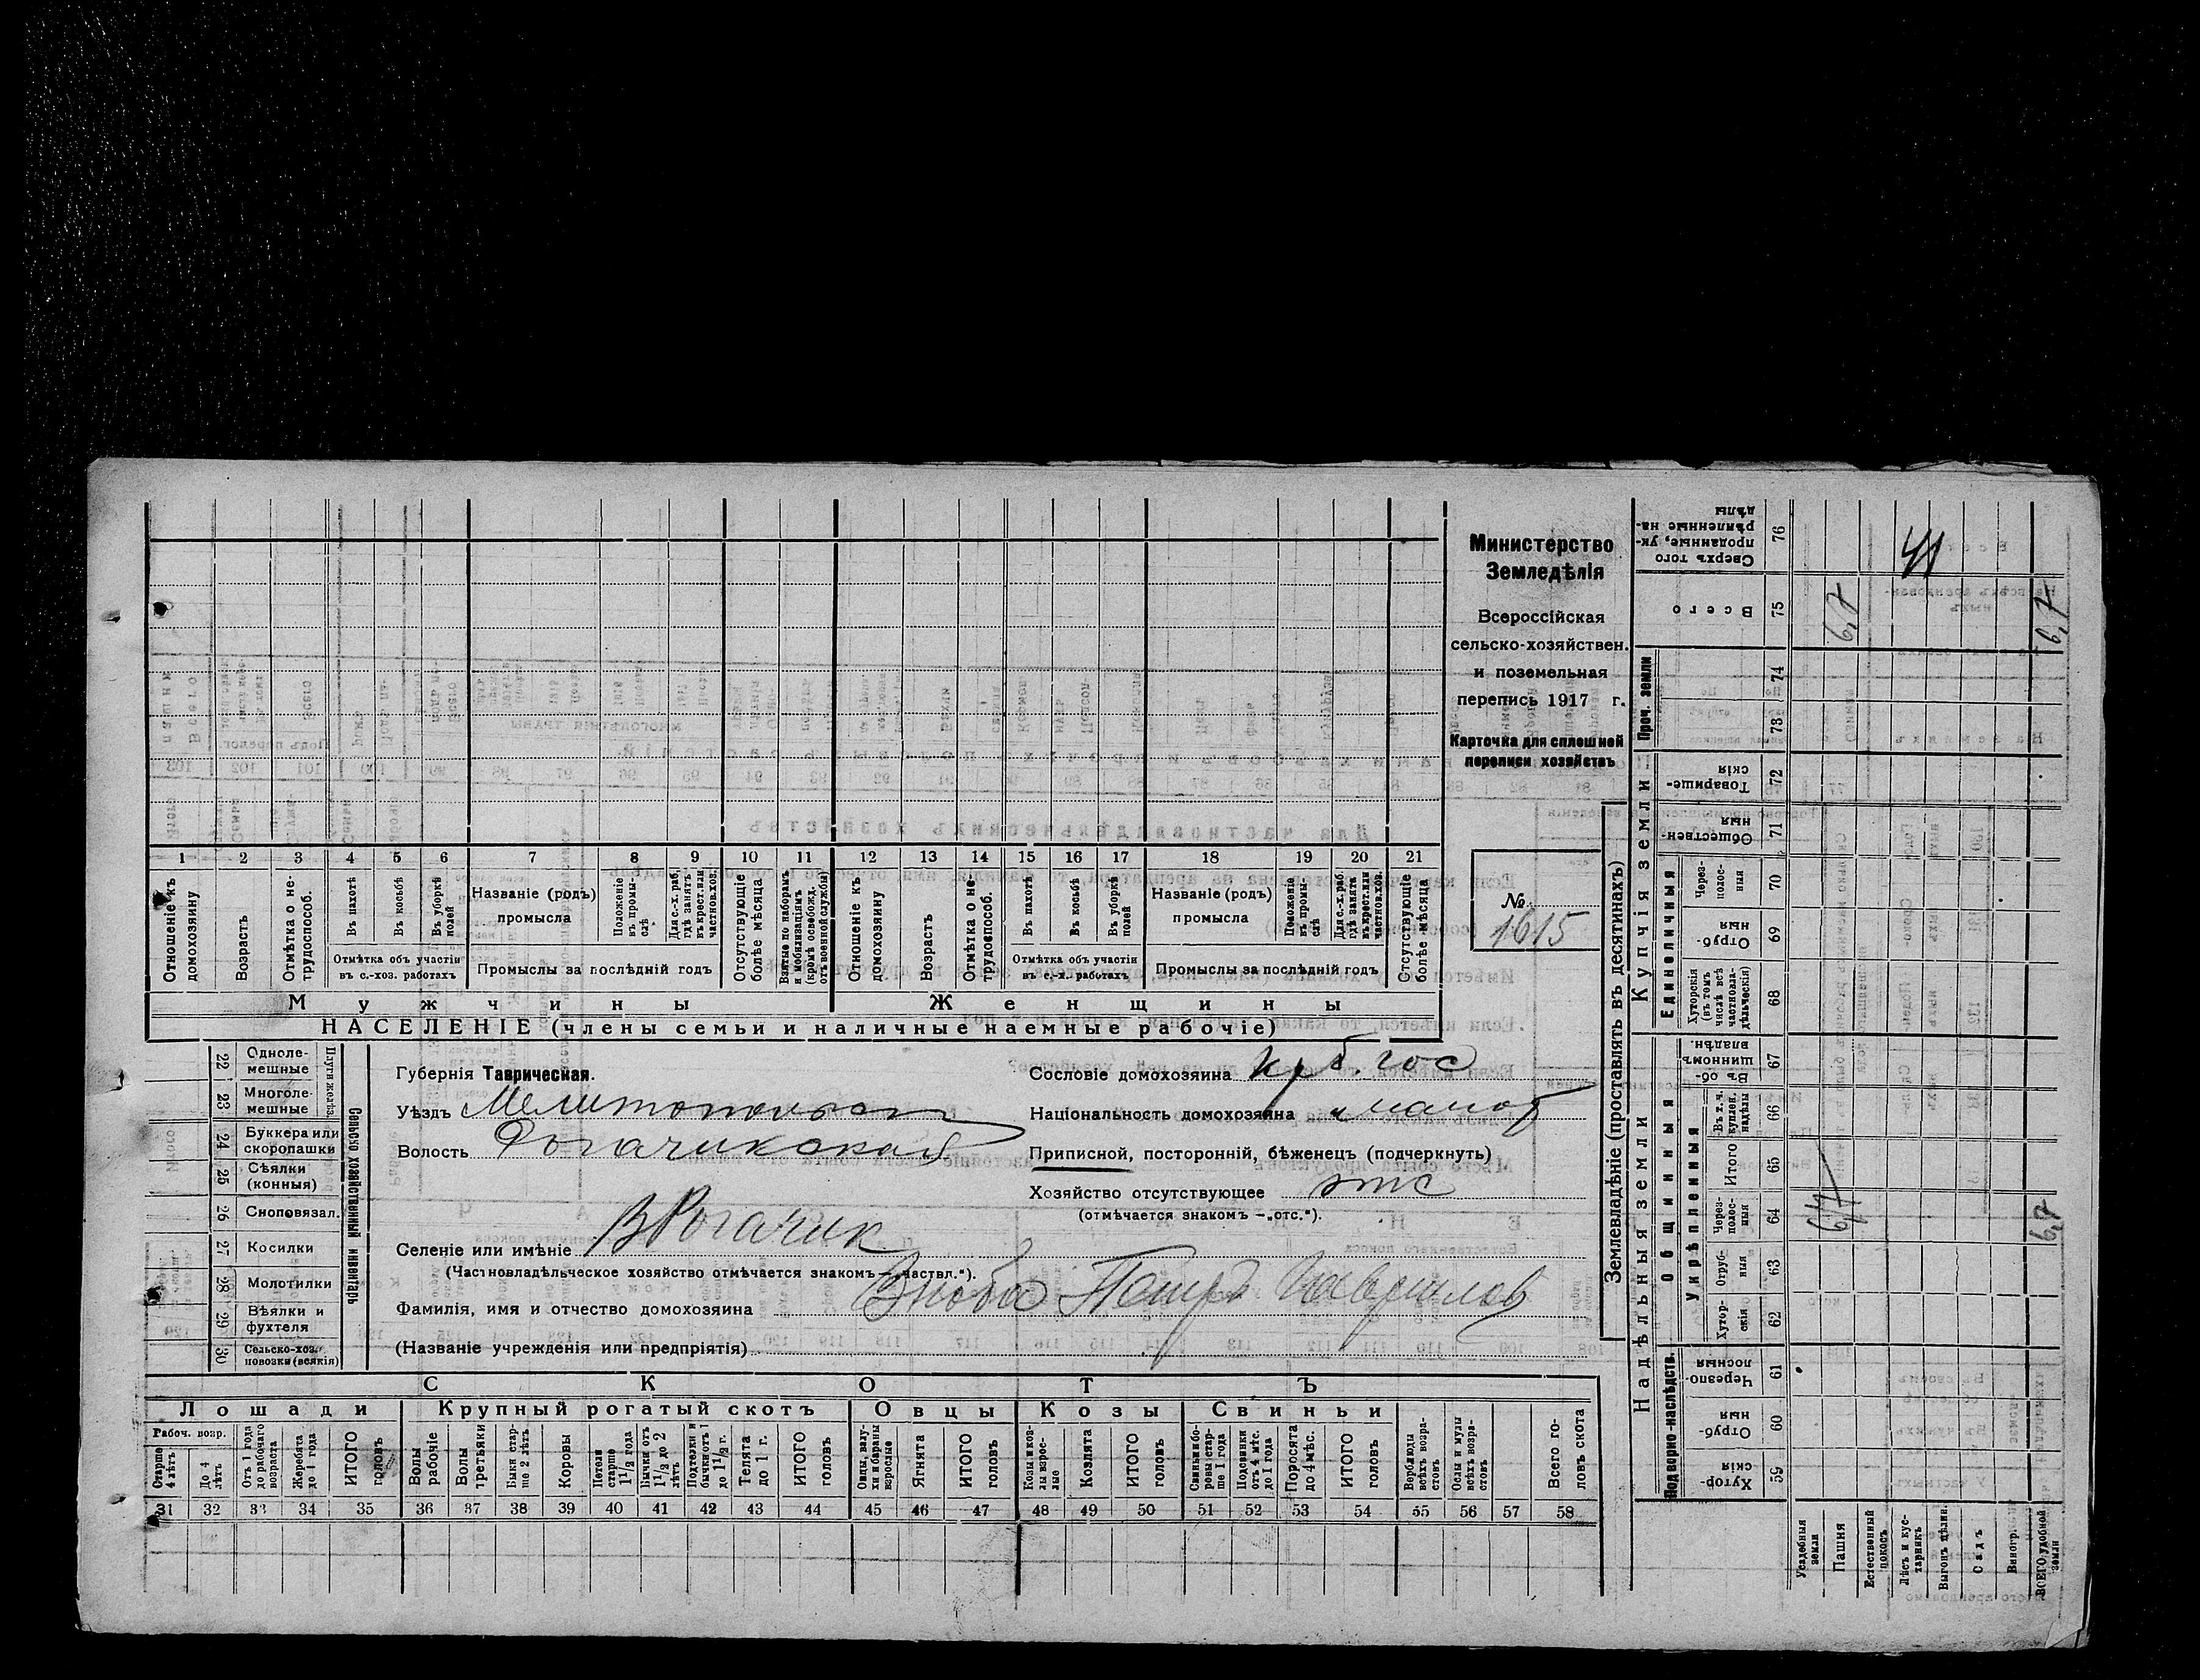 1 2 3 4 5 6 7 8 9 10 11 12 13 14 15 16 17 18 19 20 21
Отношеніе къ домохозяину
Возрастъ
Отмѣтка о не-трудоспособ.
Въ пахотѣ
Въ косьбѣ
Въ уборкѣ полей
Отмѣтка объ участіи
въ с.-хоз. работахъ
Названіе (родъ)
промысла
Положеніе въ промы-слѣ
Для с.-х. раб. гдѣ занятъ въ крест. или частнов. хоз.
Промыслы за послѣдній годъ
Отсутствующіе болѣе мѣсяца
Взятые по наборамъ и мобилизаціямъ (кромѣ освобожд. отъ военной службы)
Отношеніе къ домохозяину
Возрастъ
Отмѣтка о не-трудоспособ.
Въ пахотѣ
Въ косьбѣ
Въ уборкѣ полей
Отмѣтка объ участіи
въ с.-х. работахъ
Названіе (родъ)
промысла
Положеніе въ промы-слѣ
Для с.-х. раб. гдѣ занята въ крест. или частнов. хоз.
Промыслы за послѣдній годъ
Отсутствующіе болѣе мѣсяца
Мужчины
Женщины
НАСЕЛЕНІЕ (члены семьи и наличные наемные рабочіе)
Министерство
Земледѣлія
Всероссійская
сельско-хозяйствен.
и поземельная
перепись 1917 г.
Карточка для сплошной
переписи хозяйствъ
№
1615
Сельско-хозяйственный инвентарь
Плуги желѣз.
22 Одноле-мешные
23 Многоле-мешные
24 Буккера или скоропашки
25 Сѣялки (конныя)
26 Сноповязал.
27 Косилки
28 Молотилки
29 Вѣялки и фухтеля
30 Сельско-хоз. повозки (всякія)
Губернія Таврическая.
Уѣздъ Мелитопольск
Волость Рогачикская
Селеніе или имѣніе В Рогачик
(Частновладѣльческое хозяйство отмѣчается знакомъ—„частвл.“).
Фамилія, имя и отчество домохозяина Зноба Петръ Гаврилов
(Названіе учрежденія или предпріятія)
Сословіе домохозяина
Національность домохозяина
Приписной, посторонній, бѣженецъ (подчеркнуть)
Хозяйство отсутствующее отс
(отмѣчается знакомъ —„отс.“).
СКОТЪ
Лошади
Крупный рогатый скотъ
Овцы
Козы
Свиньи
Рабоч. возр.
Старше 4 лѣтъ
До 4 лѣтъ
Отъ 1 года до рабочаго возраста
Жеребята до 1 года
ИТОГО головъ
Волы рабочіе
Волы третьяки
Быки стар-ше 2 лѣтъ
Коровы
Нетели старше 1½ года
Бычки отъ 1½ до 2 лѣтъ
Подтелки и бычки отъ 1 до 1½ г.
Телята до 1 г.
ИТОГО головъ
Овцы, валу-хи и бараны взрослые
Ягнята
ИТОГО головъ
Козы и коз-лы взрос-лые
Козлята
ИТОГО головъ
Свиньи и бо-ровы стар-ше 1 года
Подсвинки отъ 4 мѣс. до 1 года
Поросята до 4 мѣс.
ИТОГО головъ
Верблюды всѣхъ возра-стовъ
Ослы и мулы всѣхъ возра-стовъ
Всего го-ловъ скота
31 32 33 34 35 36 37 38 39 40 41 42 43 44 45 46 47 48 49 50 51 52 53 54 55 56 57 58
Землевладѣніе (проставлять въ десятинахъ)
Надѣльныя земли
Купчія земли
Проч. земли
Подворно-наслѣдств.
Общинныя
Укрѣпленныя
Единоличныя
Хутор-скія 59
Отруб-ныя 60
Черезпо-лосныя 61
Хутор-скія 62
Отруб-ныя 63
Через-полос-ныя 64
Итого 65
Въ т. ч. куплен. надѣлы 66
Въ об-щинномъ владѣн. 67
Хуторскія (въ томъ числѣ всѣ частновла-дѣльческія) 68
Отруб-ныя 69
Через-полос-ныя 70
Обществен-ныя 71
Товарище-скія 72
73
74
Всего 75
Сверхъ того проданные, ук-рѣпленные на-дѣлы 76
Усадебныя земли
Пашня
6,7
6,7
Естественный покосъ
Лѣсъ и кус-тарникъ
Выгонъ дѣлин.
Садъ
Виногр.
ВСЕГО удобной земли
6,7
6,7
41